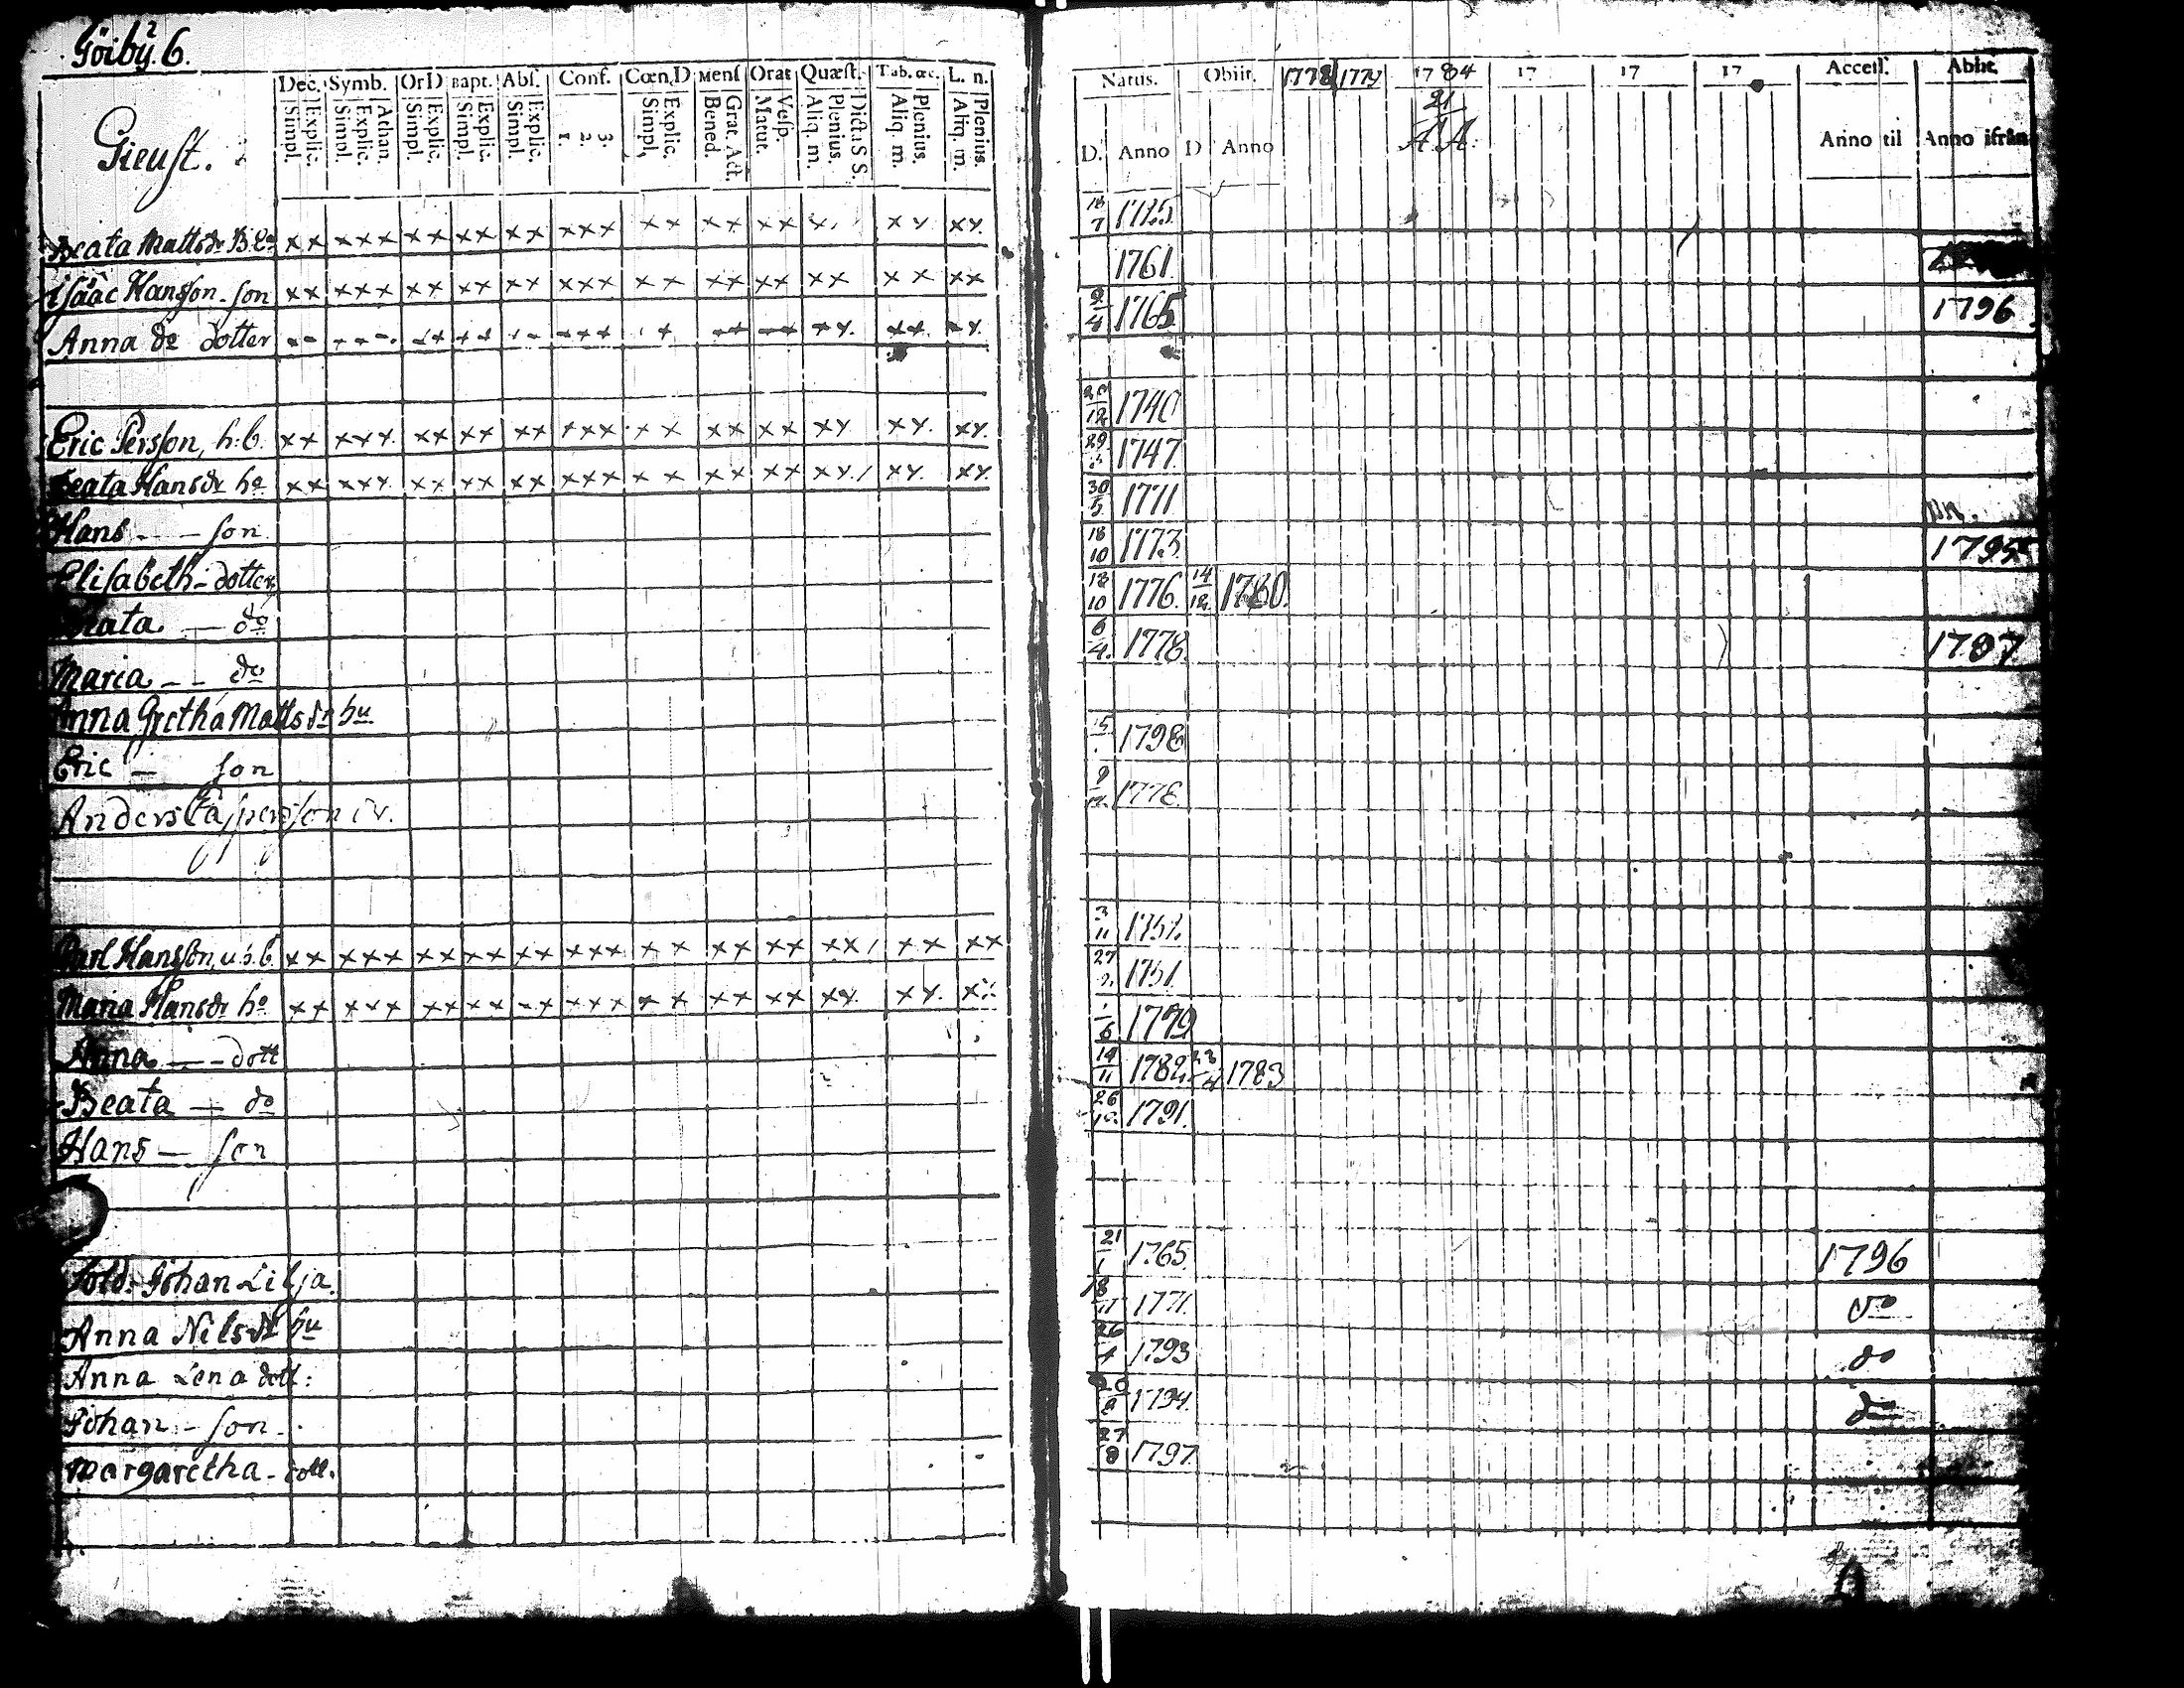 Göiby. 6.
Dec. Symb. Or D Bapt. Abſ. Conf. Cœn. D Menſ Orat Quæſt. Tab. œc. L. n.
Simpl. Explic. Simpl. Explic. Athan. Simpl. Explic. Simpl. Explic. Simpl. Explic. 1. 2. 3. Simpl. Explic. Bened. Grat. Act. Matut. Veſp. Aliq. m. Plenius. Dicta S S. Aliq. m. Plenius. Aliq. m. Plenius.
Natus. Obiit. 1778 1779 1784 17 17 17 Acceſſ. Abht.
D. Anno D Anno 21 A.A. Anno til Anno ifrån
Gieuſt.
Beata Mattsdr
Iſaac Hansſon - ſon 1761
Anna do dotter 9/4 1765 1796
Eric Persſon, h:b. 1740
Beata Hansdr ho 29 1747
Hans - - ſon 30/5 1771
Eliſabeth - dotter 18/10 1773 1795
Beata — do 13/10 1776. 14/12 1780.
Maria - - do 6/4. 1778. 1787
Anna Gretha Matts dr hu
Eric — ſon 15 1798
Anders 1778.
Carl Hansſon, 3/11
Maria Hansdr ho 27 1751
Anna — - dott 1/6 1779
Beata — do 19/11 1782. 23/4 1783
Hans — ſon 26/10. 1791.
Sold: Johan Lilja. 21/1 1765 1796
Anna Nilsdr hu 18/11 1771. do
Anna Lena dott: 26/4 1793 do
Johan - ſon 20 1794. do
Margaretha - dott. 27/8 1797